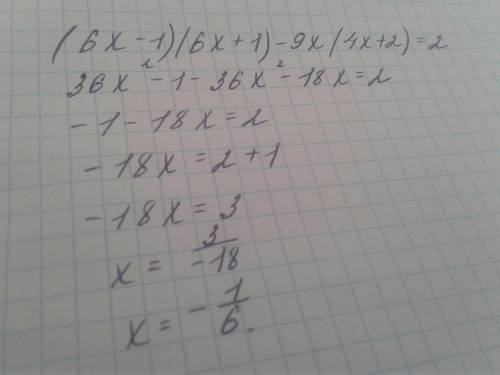 (6x-1)(6x+1)-9x(4x+2)=2
36x²-1-36x²-18x=2
-1-18x=2
-18x=2+1
-18x=3
x=3/-18
x=-1/6.